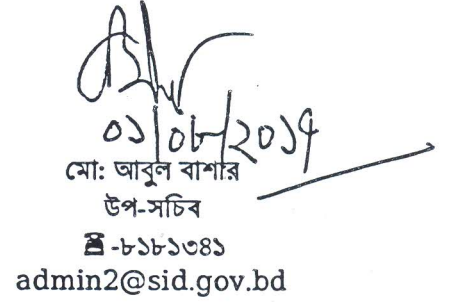 ০১/০৮/২০১৭
মো: আবুল বাশার
উপ-সচিব
☎ -৮১৮১৩৪১
admin2@sid.gov.bd